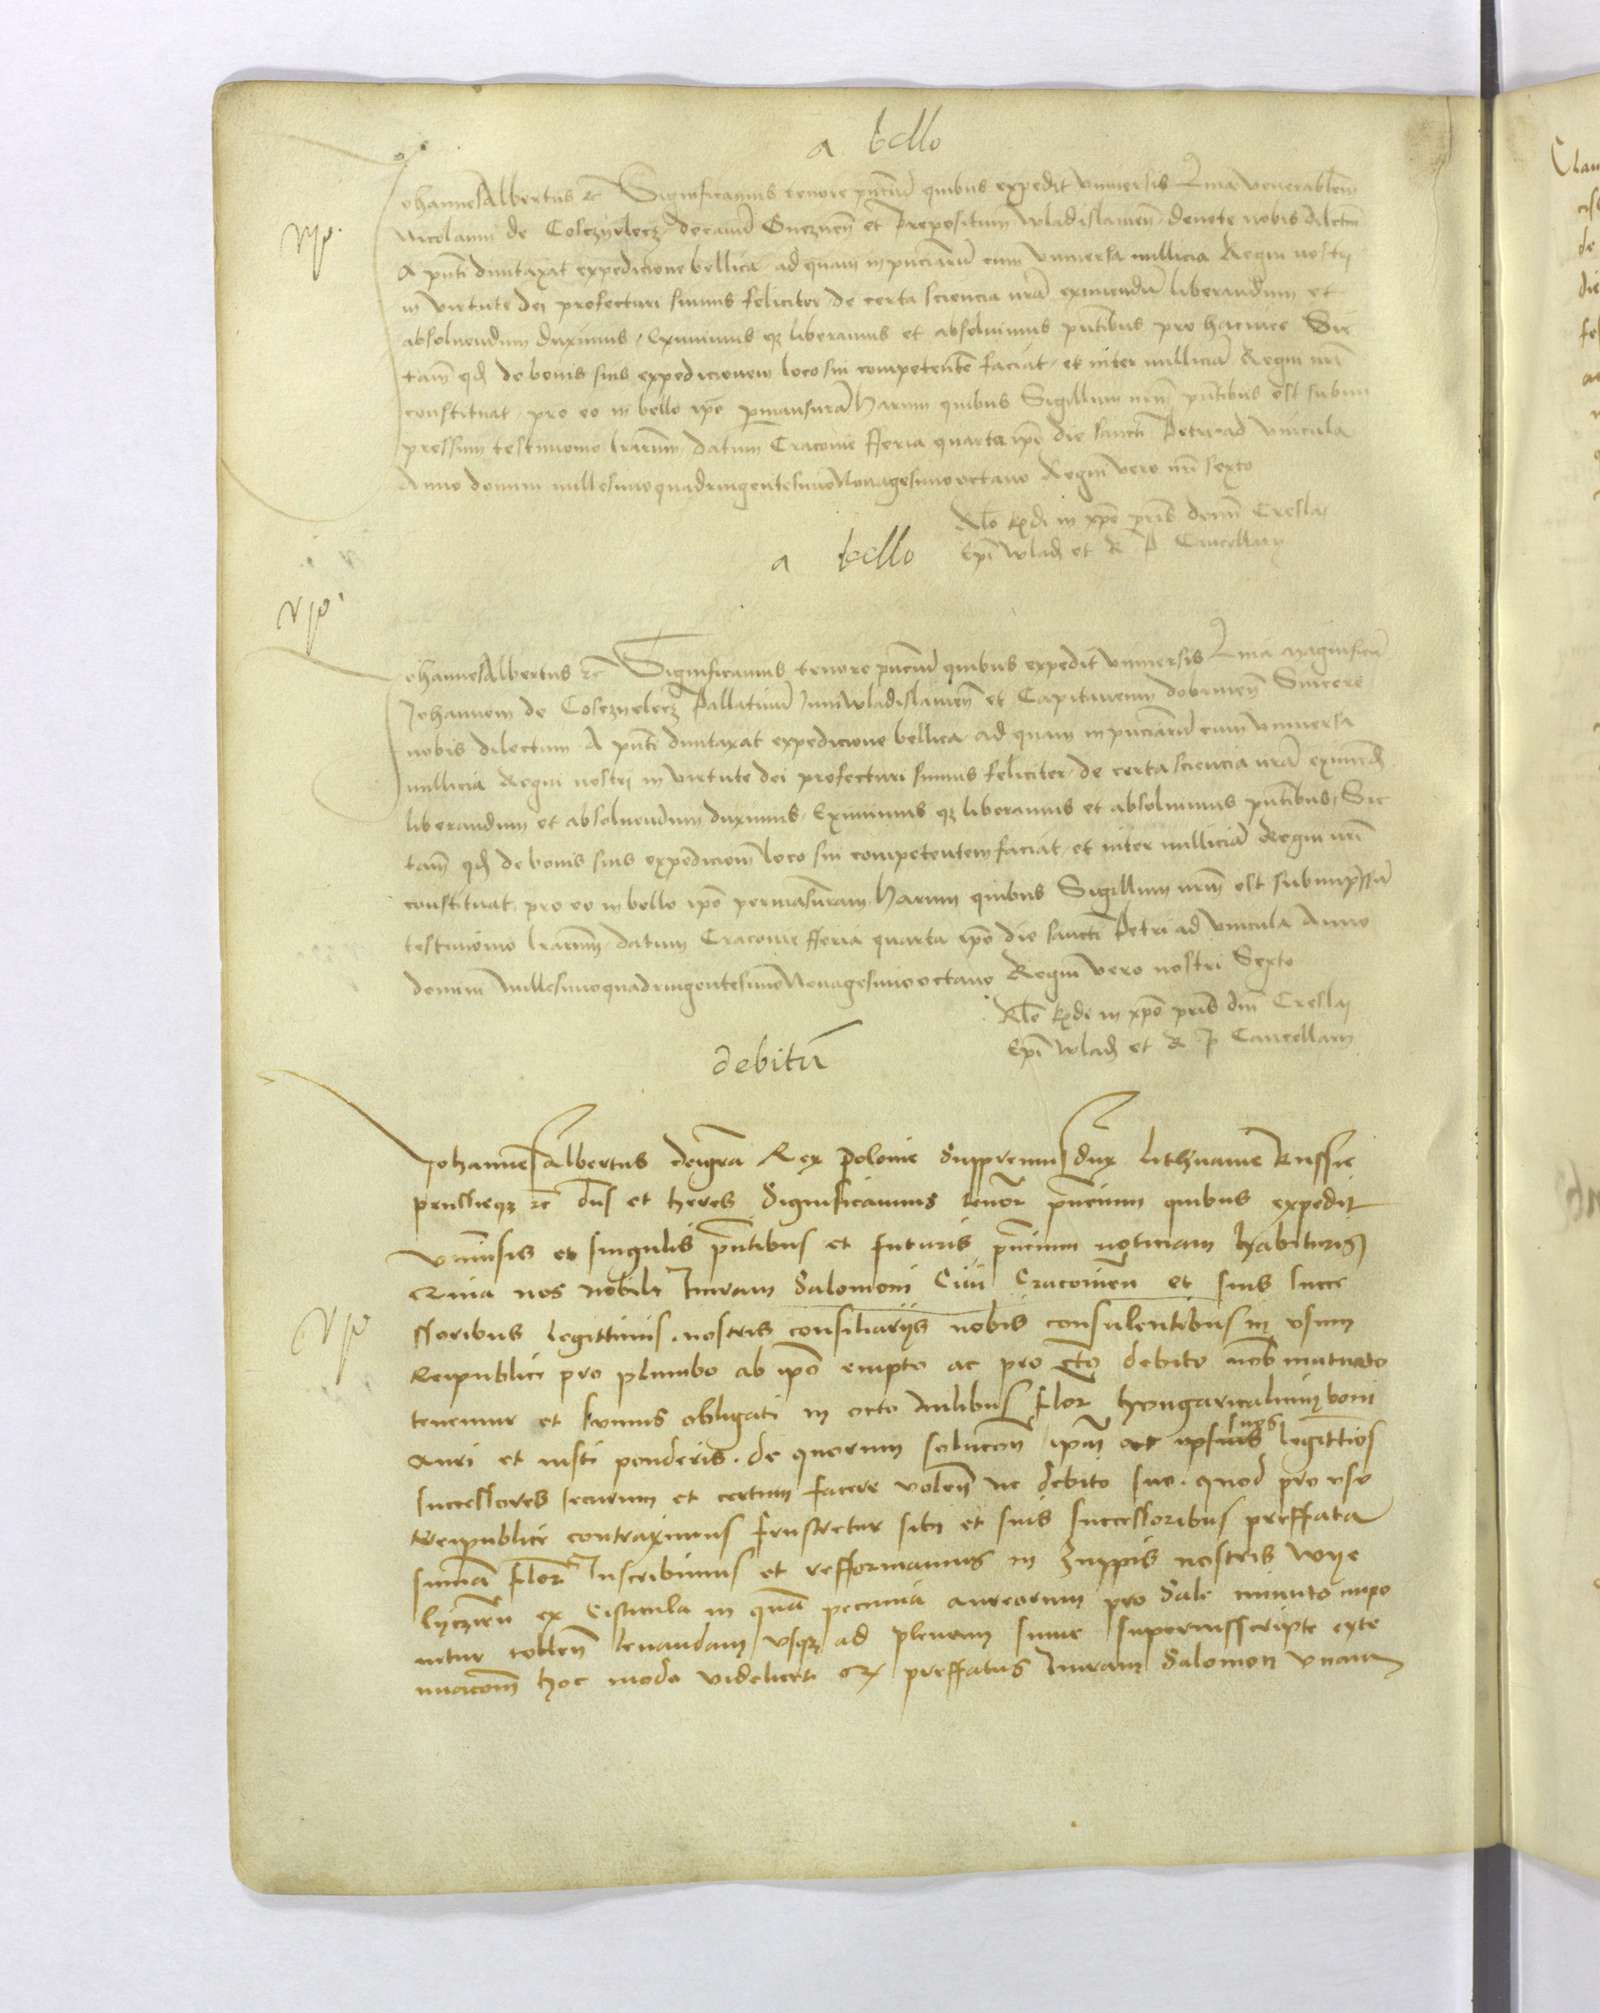 a bello
JohannesAlbertus ꝛc Significamus tenore pñciũ quibus expedit vniuersis Quia venerabilem
Nicolaum de Cosczyelecz decanũ Gneznen̄ et Prepositum wladislauien̄ deuote nobis dilectũ
A pñti dumtaxat expedicione bellica ad quam inpñciarũ cum vniuersa millicia Regni nostri
in virtute dei profecturi sumus feliciter de certa sciencia nr̃a eximendũ liberandum et
absoluendum duximus Eximimus qꝫ liberamus et absoluimus pñtibus pro hac vice Sic
tam̃ qđ de bonis suis expedicionem loco sui competentẽ faciat et inter milliciã Regni nr̃i
constituat pro eo in bello ip̃o ꝑmansurã Harum quibus Sigillum nr̃m pñtibus est subim
pressum testimonio l̃rarum datum Cracouie fferia quarta ip̃o die sancti Petri ad vincula
Anno domini millesimoquadringentesimoNonagesimooctauo Regni vero nr̃i sexto
Rl̃o Rx̃di in xp̃o pr̃is domi Creslai
Ep̃i wlađ et R P Cancellarij
a bello
JohannesAlbertus ꝛc Significamus tenore pñciũ quibus expedit vniuersis Quia Magnificũ
Johannem de Cosczyelecz Pallatinũ Juniwladislauien̄ et Capitaneum dobrinen̄ Sincere
nobis dilectum A pñti dumtaxat expedicione bellica ad quam inpñciarũ cum vniuersa
millicia Regni nostri in virtute dei profecturi sumus feliciter de certa sciencia nr̃a eximenđ
liberandum et absoluendum duximus Eximimus qꝫ liberamus et absoluimus pñtibus Sic
tam̃ qđ de bonis suis expedicionem loco sui competentem faciat et inter milliciã Regni nr̃i
constituat pro eo in bello ip̃o permansuram Harum quibus Sigillum nr̃m est subimp̃ssũ
testimonio l̃rarum datum Cracouie fferia quarta ip̃o die sancti Petri ad vincula Anno
domini MillesimoquadringentesimoNonagesimooctauo Regni vero nostri Sexto
Rl̃o Rx̃di in xp̃o pr̃is dñi Creslai
Ep̃i wlađ et R P Cancellarij
debitũ
Johannes Albertus dei gr̃a Rex Polonie Suppremus dux Lithuanie Russie
prussieqꝫ ꝛc dñs et heres Significamus tenor̃ pñcium quibus expedit
vniũsis et singulis pñtibus et futuris pñcium noticiam habituris
Quia nos Nobili Juram Salomoni Ciui Cracouien̄ et suis succe
ssoribus legittimis nostris consiliariis nobis consulentibus in vsum
Reipublice pro plumbo ab ip̃o empto ac pro c̃to debito nob̃ mutuato
tenemur et sumus obligati in octo Milibus flor̃ hungaricalium boni
auri et iusti ponderis de quorum soluc̃on̄ ip̃m ac ipsius suos legittĩos
successores securum et certum facere volen̄ ne debito suo quod pro vsu
Reipublice contraximus frustretur sibi et suis successoribus preffata
sum̃am flor̃ Inscribimus et refformamus in zuppis nostris Wye
lyczien̄ ex Cistula in quã pecunia aureorum pro Sale minuto impo
nitur tollen̄ leuandam vsqꝫ ad plenam sum̃e supernisscripte exte
nuac̃onẽ hoc modo videlicet qđ preffatus Juram Salomon vnam